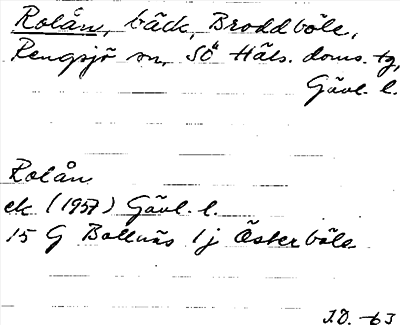 Rolån, bäck, Broddböle,
Rengsjö sn, SÖ Häls. doms. tg,
Gävl. l.
Rolån
ek (1957) Gävl. l.
15 G Bollnäs 1j Österböle
J.D. -63